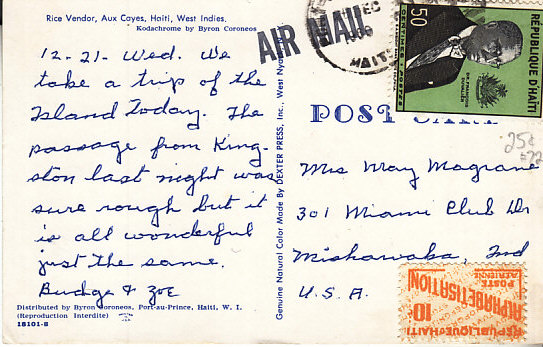 Rice Vendor, Aux Cayes, Haiti, West Indies.
Kodachrome by Byron Coroneos
12-21-Wed. We
take a trip of the
Island Today. The
passage from King-
ston last night was
sure rough but it
is all wonderful
just the same.
Budge & Zoe
Distributed by Byron Coroneos, Port-au-Prince, Haiti, W. I.
(Reproduction Interdite)
18101-B
Genuine Natural Color Made By DEXTER PRESS, Inc., West Nyack
AIR MAIL
DEC
HAITI
50
CENTIMES
POSTES
RÉPUBLIQUE D'HAÏTI
DR. FRANÇOIS DUVALIER
POST
25¢
Mrs May Magrane
301 Miami Club Dr
Mishawaka, Ind
U.S.A.
REPUBLIQUE D'HAITI
10c
ALPHABETISATION
POSTE AERIENNE